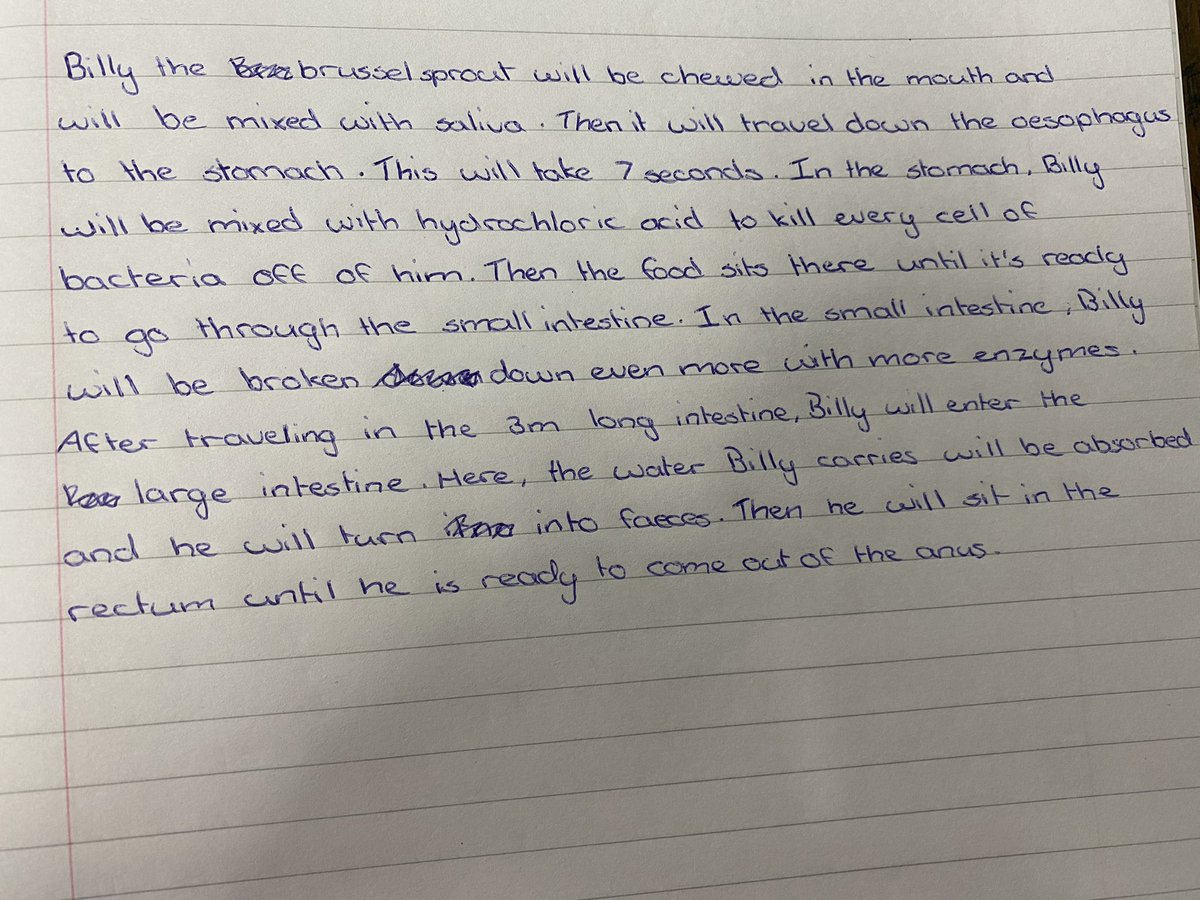 Billy the brussel sprout will be chewed in the mouth and
will be mixed with saliva. Then it will travel down the oesophagus
to the stomach. This will take 7 seconds. In the stomach, Billy
will be mixed with hydrochloric acid to kill every cell of
bacteria off of him. Then the food sits there until it's ready
to go through the small intestine. In the small intestine, Billy
will be broken down even more with more enzymes.
After traveling in the 3m long intestine, Billy will enter the
large intestine. Here, the water Billy carries will be absorbed
and he will turn into faeces. Then he will sit in the
rectum until he is ready to come out of the anus.